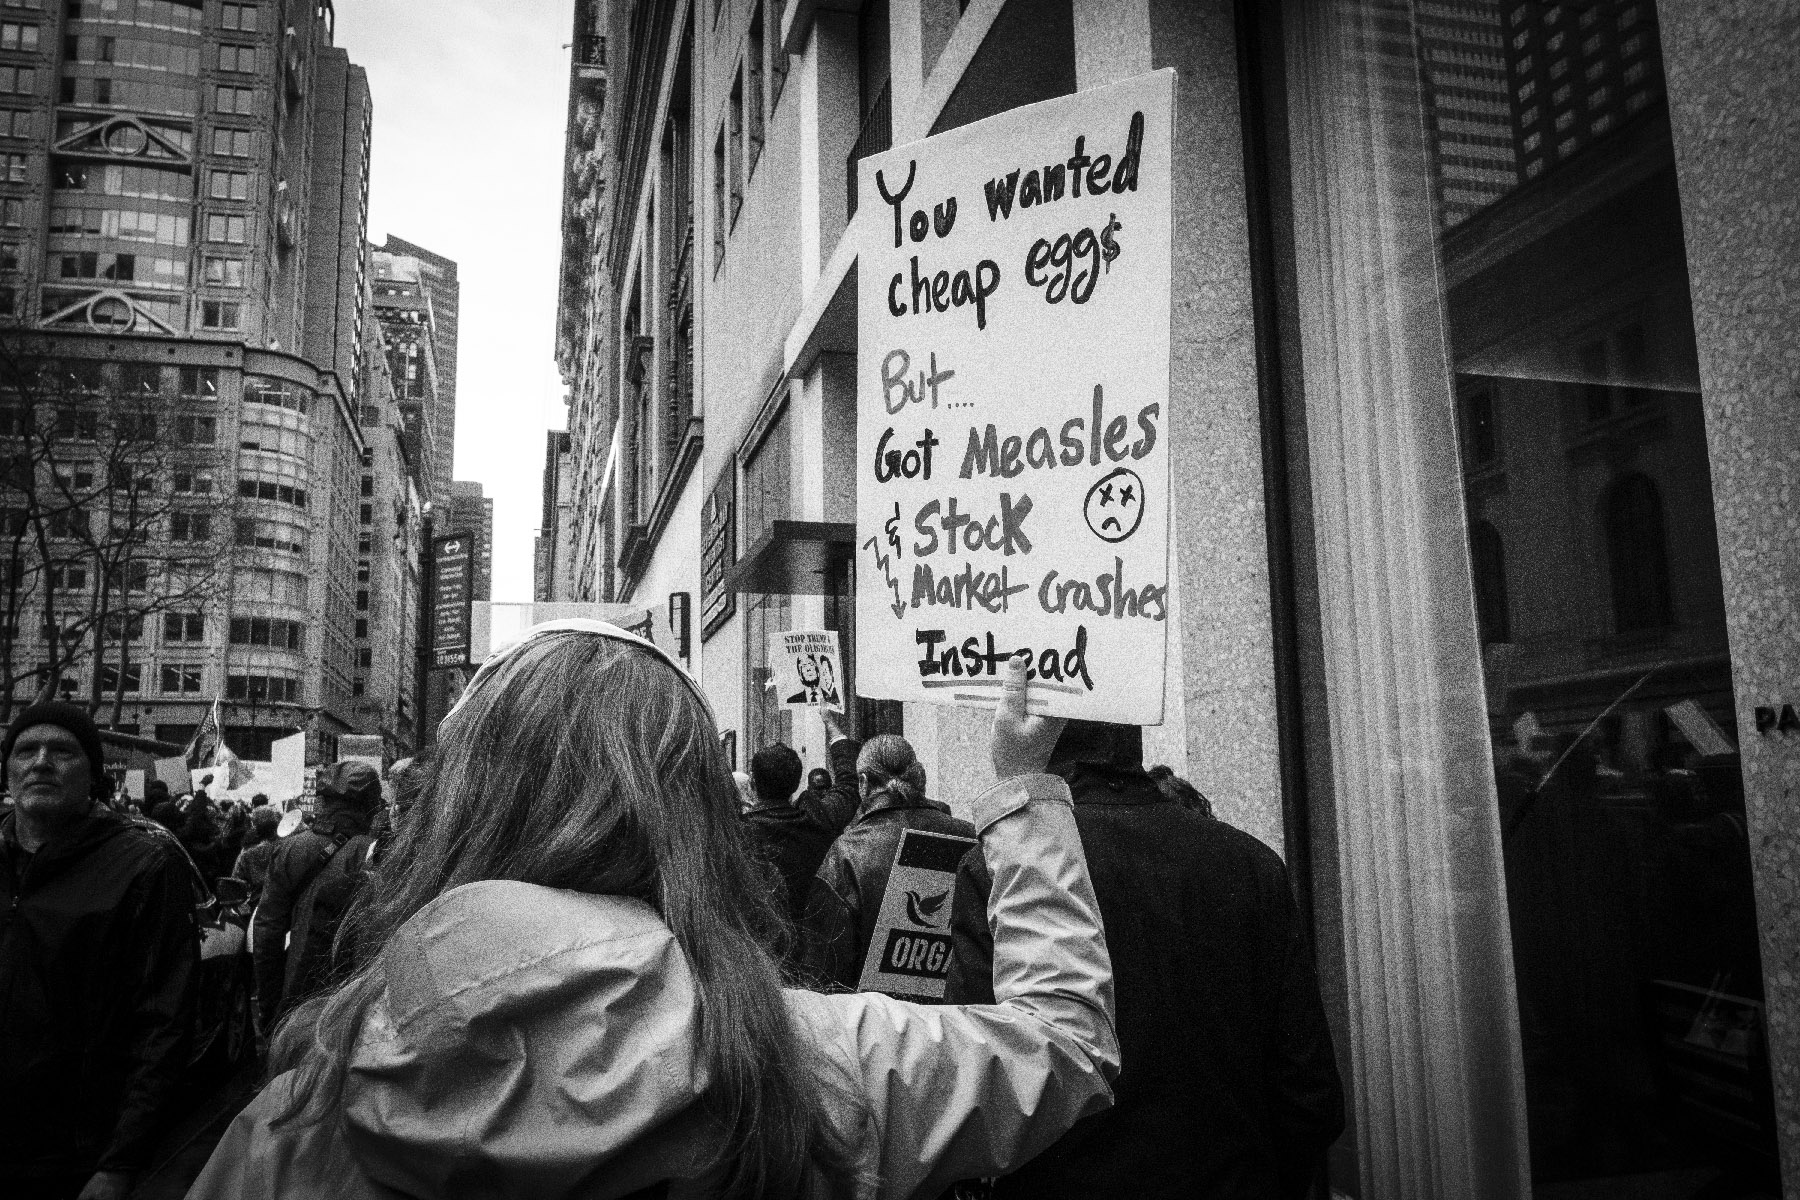 You wanted
cheap egg$
But....
Got Measles
& Stock
Market crashes
Instead
STOP TRUMP &
THE OLIGARCHS
ORGA
PA